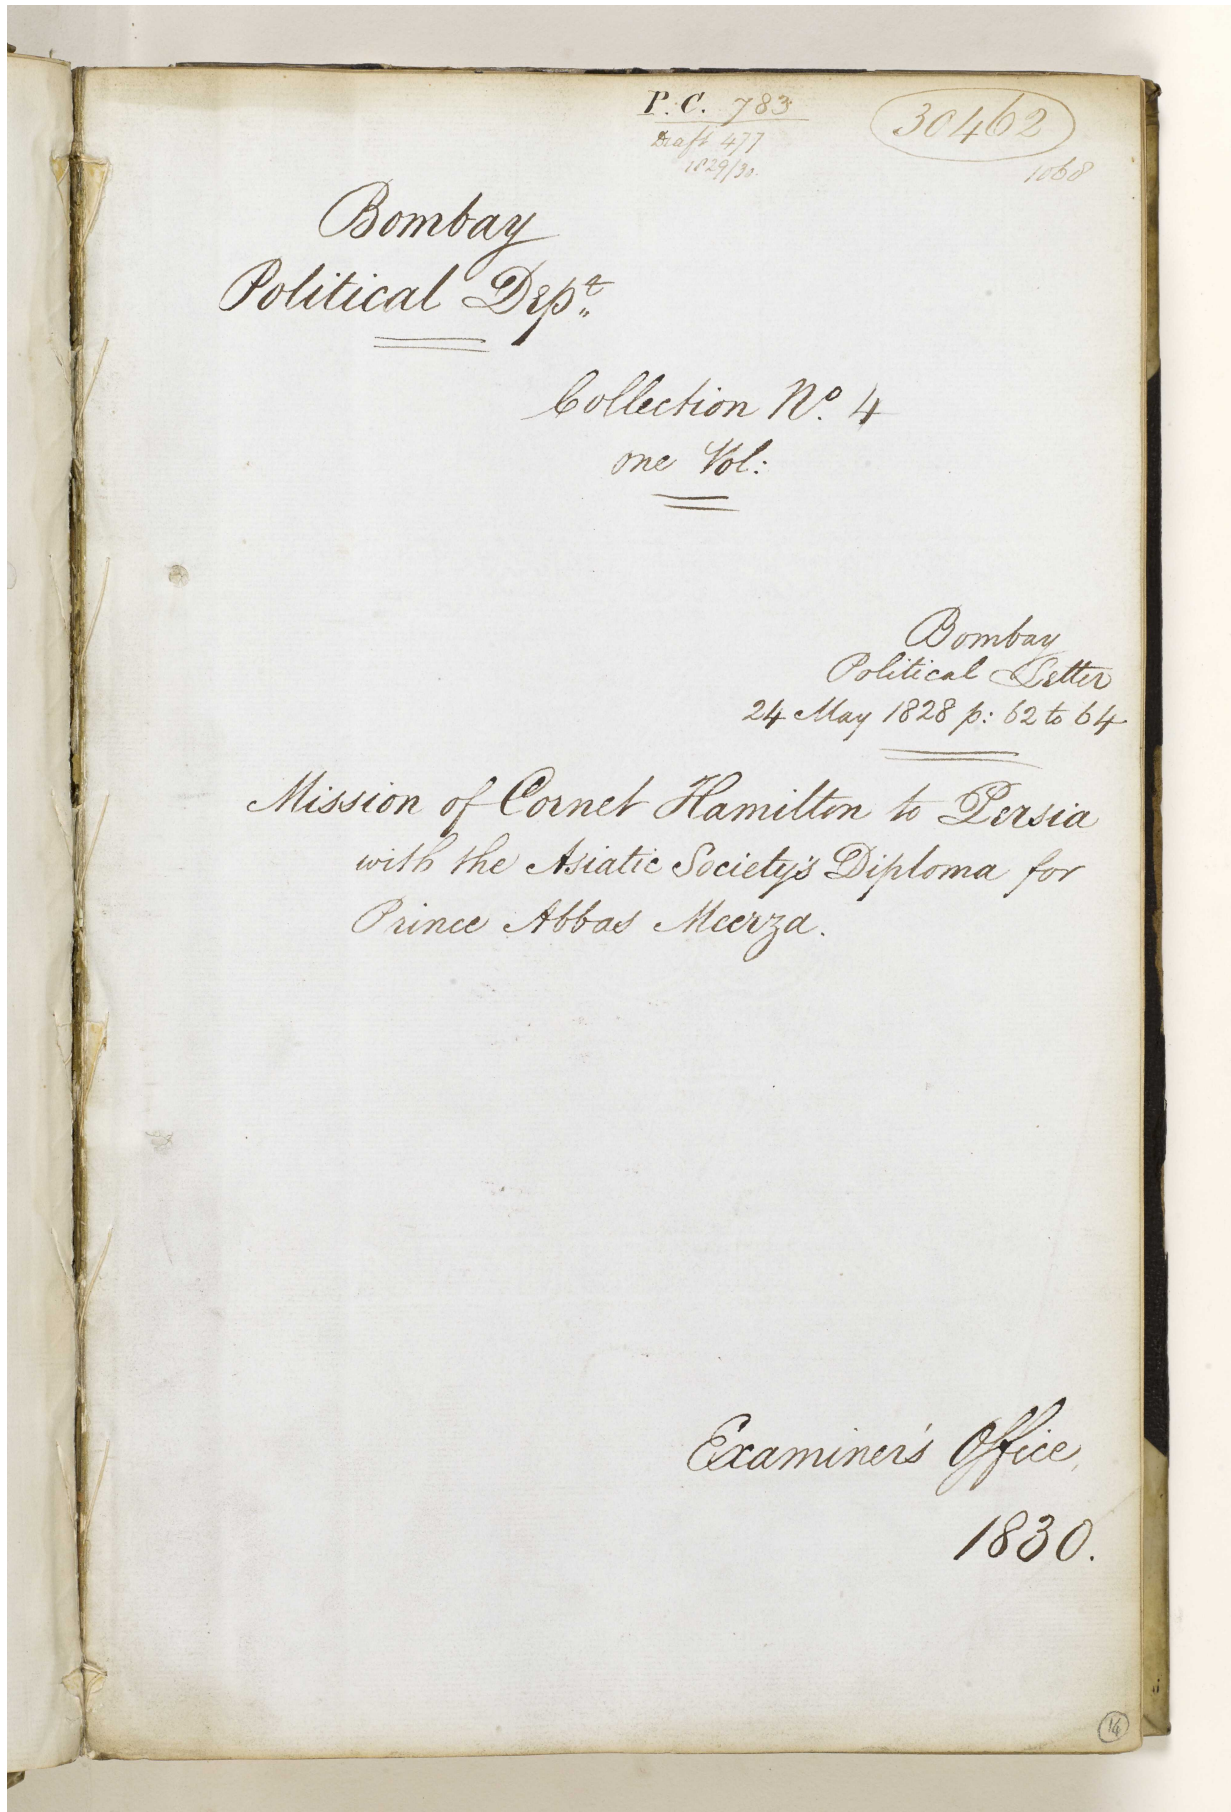 P. C. 783
Draft 477
1829/30.
30462
1068
Bombay
Political Dept.
Collection No. 4
one Vol:
Bombay
Political Letter
24 May 1828 p: 62 to 64
Mission of Cornet Hamilton to Persia
with the Asiatic Society's Diploma for
Prince Abbas Meerza.
Examiner's Office,
1830.
14